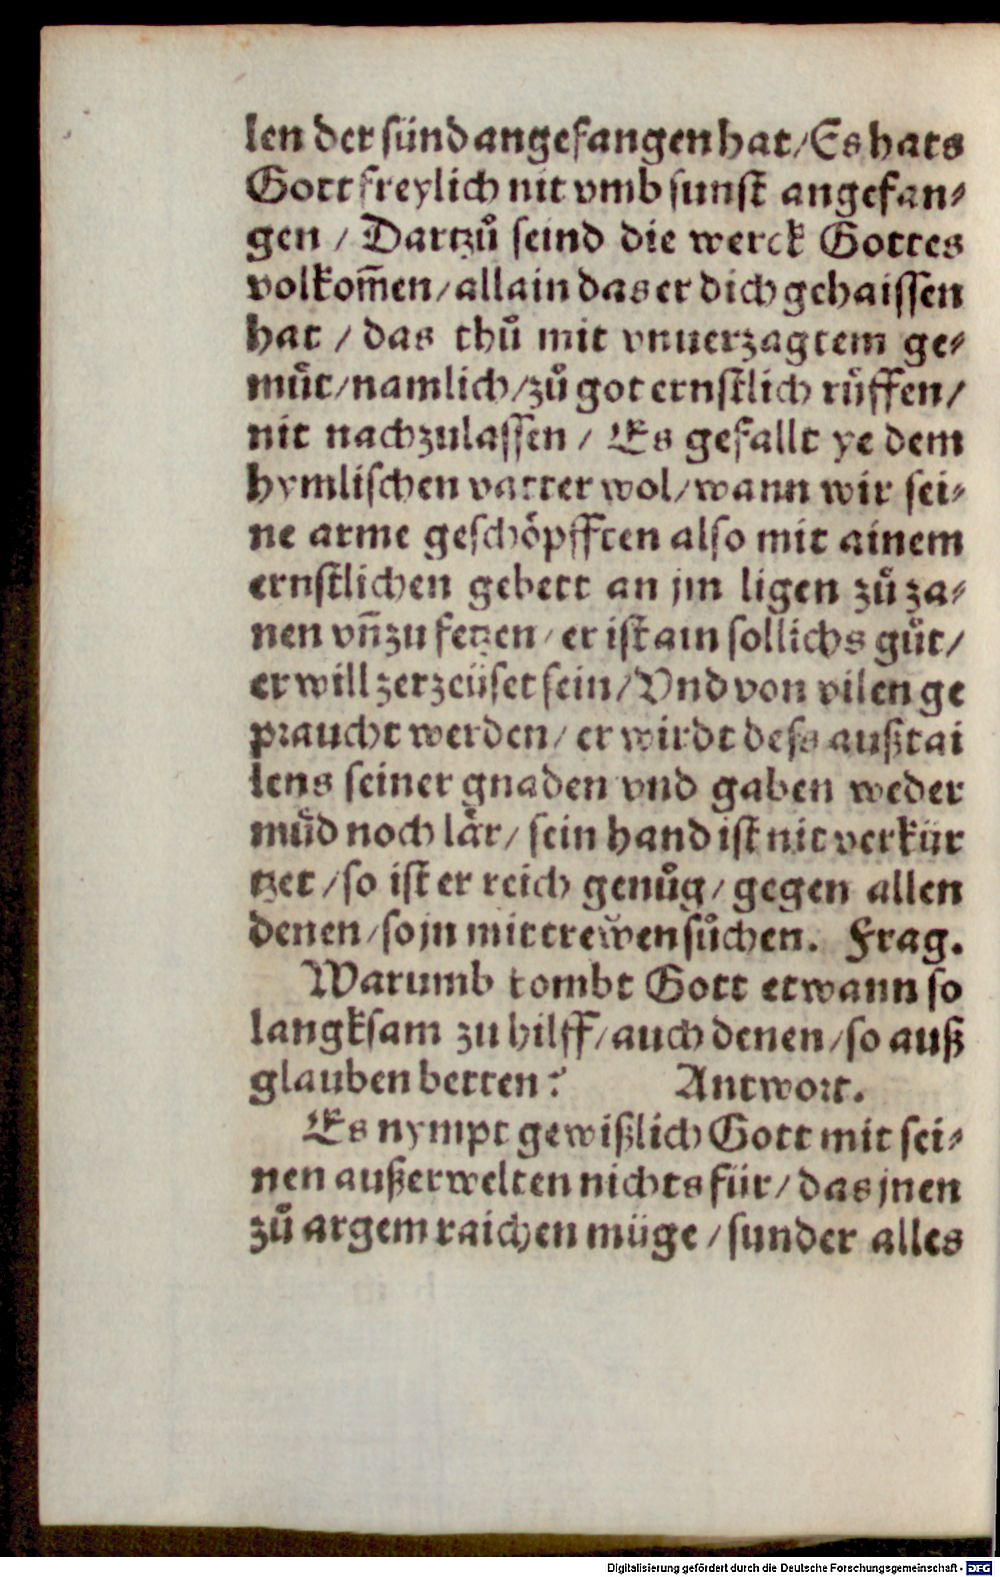 len der sünd angefangen hat / Es hats
Gott freylich nit vmb sunst angefan⸗
gen / Dartzů seind die werck Gottes
volkom̄en / allain das er dich gehaissen
hat / das thů mit vnuerzagtem ge⸗
můt / namlich / zů got ernstlich růffen /
nit nachzulassen / Es gefallt ye dem
hymlischen vatter wol / wann wir sei⸗
ne arme geschöpfften also mit ainem
ernstlichen gebett an jm ligen zů za⸗
nen vn̄ zu fetzen / er ist ain sollichs gůt /
er will zerzeüset sein / Vnd von vilen ge
praucht werden / er wirdt dess außtai
lens seiner gnaden vnd gaben weder
můd noch lår / sein hand ist nit verkür
tzet / so ist er reich genůg / gegen allen
denen / so jn mit trewen sůchen. Frag.
Warumb kombt Gott etwann so
langksam zu hilff / auch denen / so auß
glauben betten? Antwort.
Es nympt gewißlich Gott mit sei⸗
nen außerwelten nichts für / das jnen
zů argem raichen müge / sunder alles
Digitalisierung gefördert durch die Deutsche Forschungsgemeinschaft - DFG